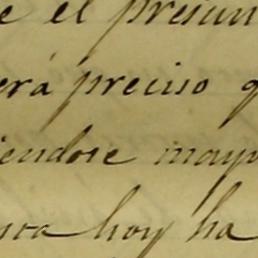 e el presun
erá preciso q
iendose mayo
hoy ha